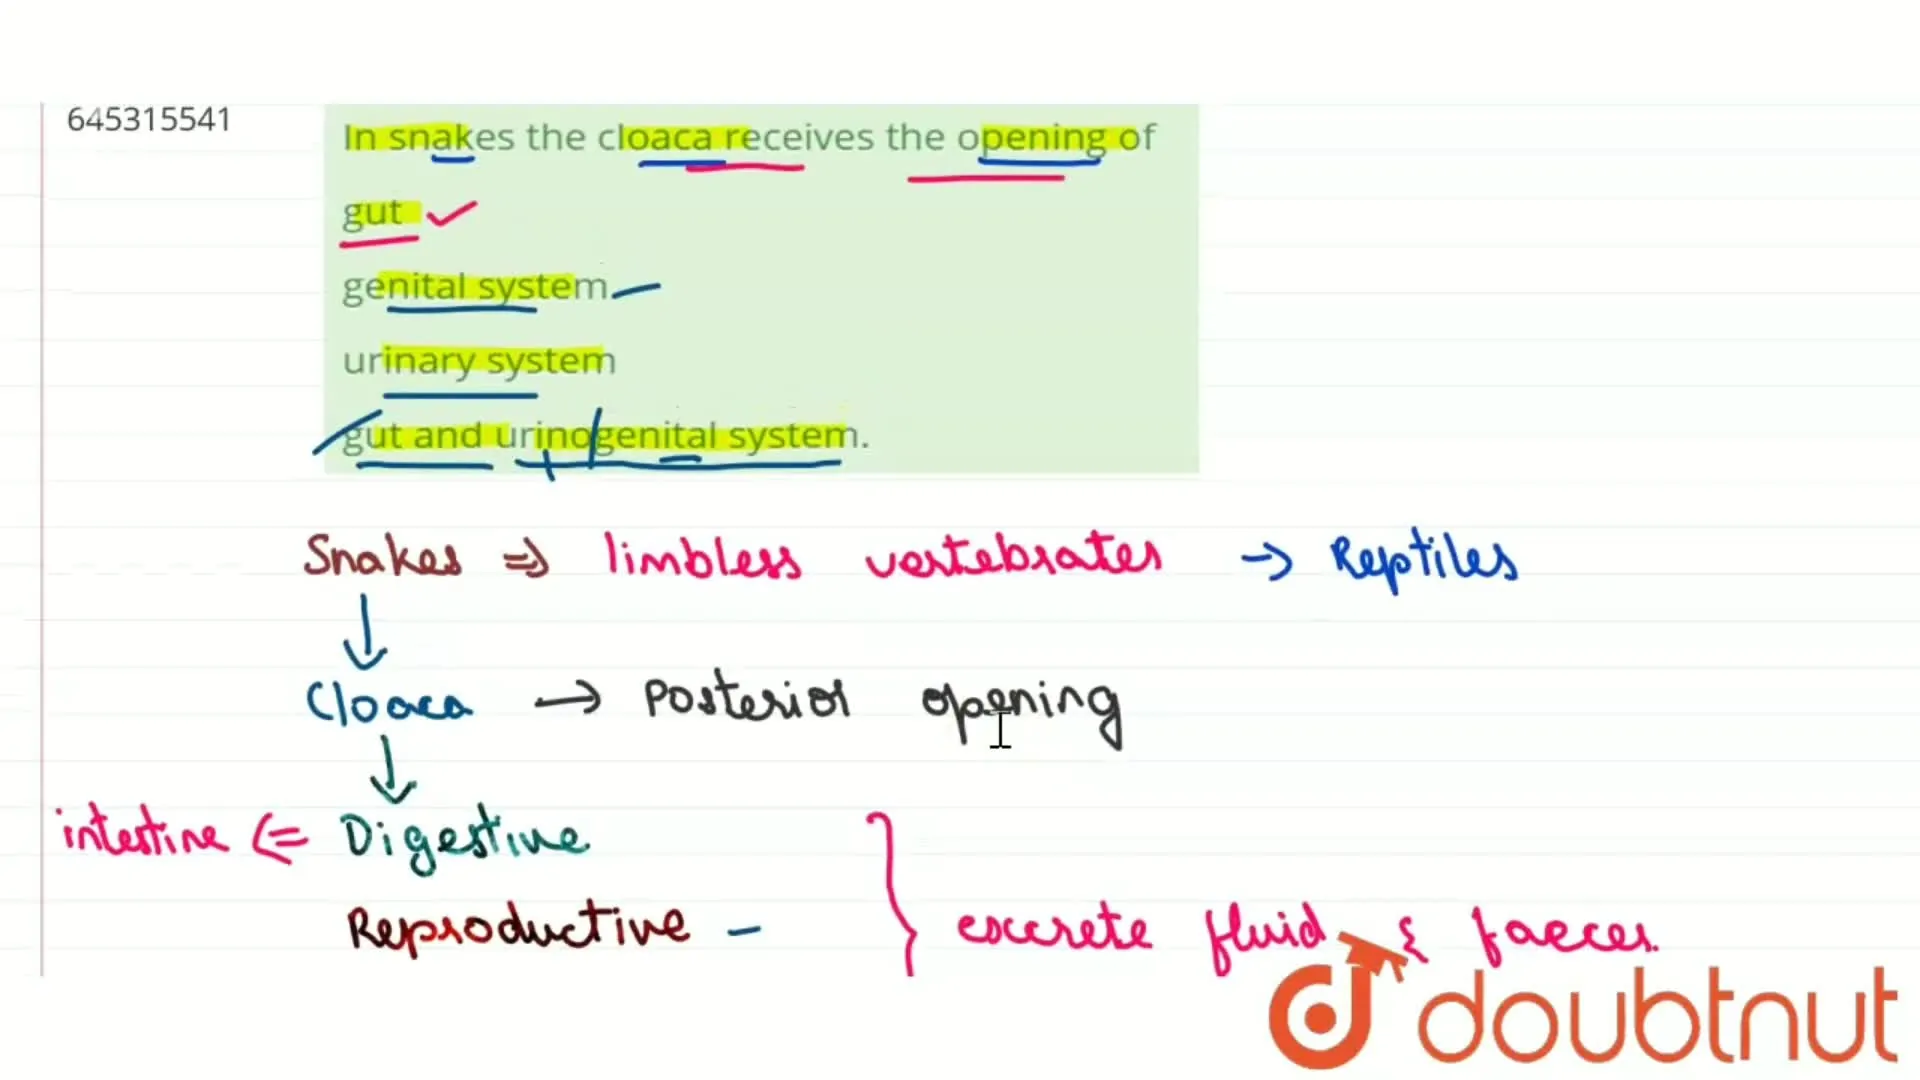 645315541
In snakes the cloaca receives the opening of
gut
genital system
urinary system
gut and urinogenital system.
Snakes ⇒ limbless vertebrates → Reptiles
Cloaca → Posterior opening
intestine ⇐ Digestive
Reproductive - excrete fluid & faeces.
doubtnut